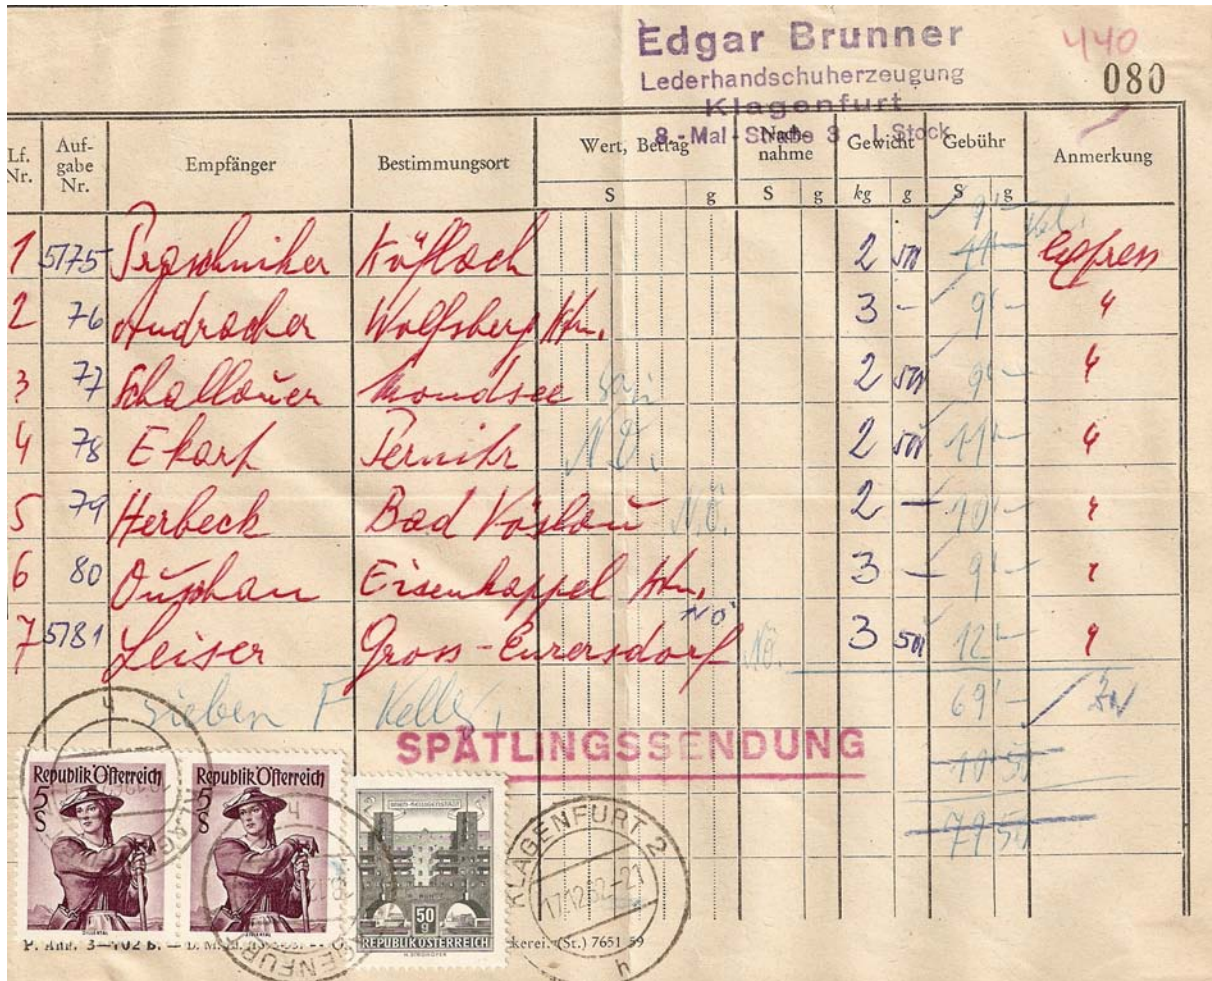 Edgar Brunner
Lederhandschuherzeugung
Klagenfurt
8.-Mai-Straße 3 - I. Stock
440
080
Lf. Nr. Aufgabe Nr. Empfänger Bestimmungsort Wert, Betrag Nachnahme Gewicht Gebühr Anmerkung
S g S g kg g S g
9'—
1 5175 Köflach 2 50 11'— Express
2 76 Wolfsberg Ktn. 3 — 9'— "
3 77 Mondsee 2 50 9'— "
4 78 Pernitz N.Ö. 2 50 11'— "
5 79 Herbeck Bad Vöslau N.Ö. 2 — 10'— "
6 80 Eisenkappel Ktn. 3 — 9'— "
NÖ
7 5781 Leiser Gross-Enzersdorf NÖ. 3 50 12'— "
sieben 69'—
SPÄTLINGSSENDUNG
10 50
79 50
Republik Österreich Republik Österreich
5 S 5 S
WIEN-HEILIGENSTADT
50 g
REPUBLIK ÖSTERREICH
KLAGENFURT 2
17.12.62-21
h
P. Anh. 3—102 B. — kerei. (St.) 7651 59